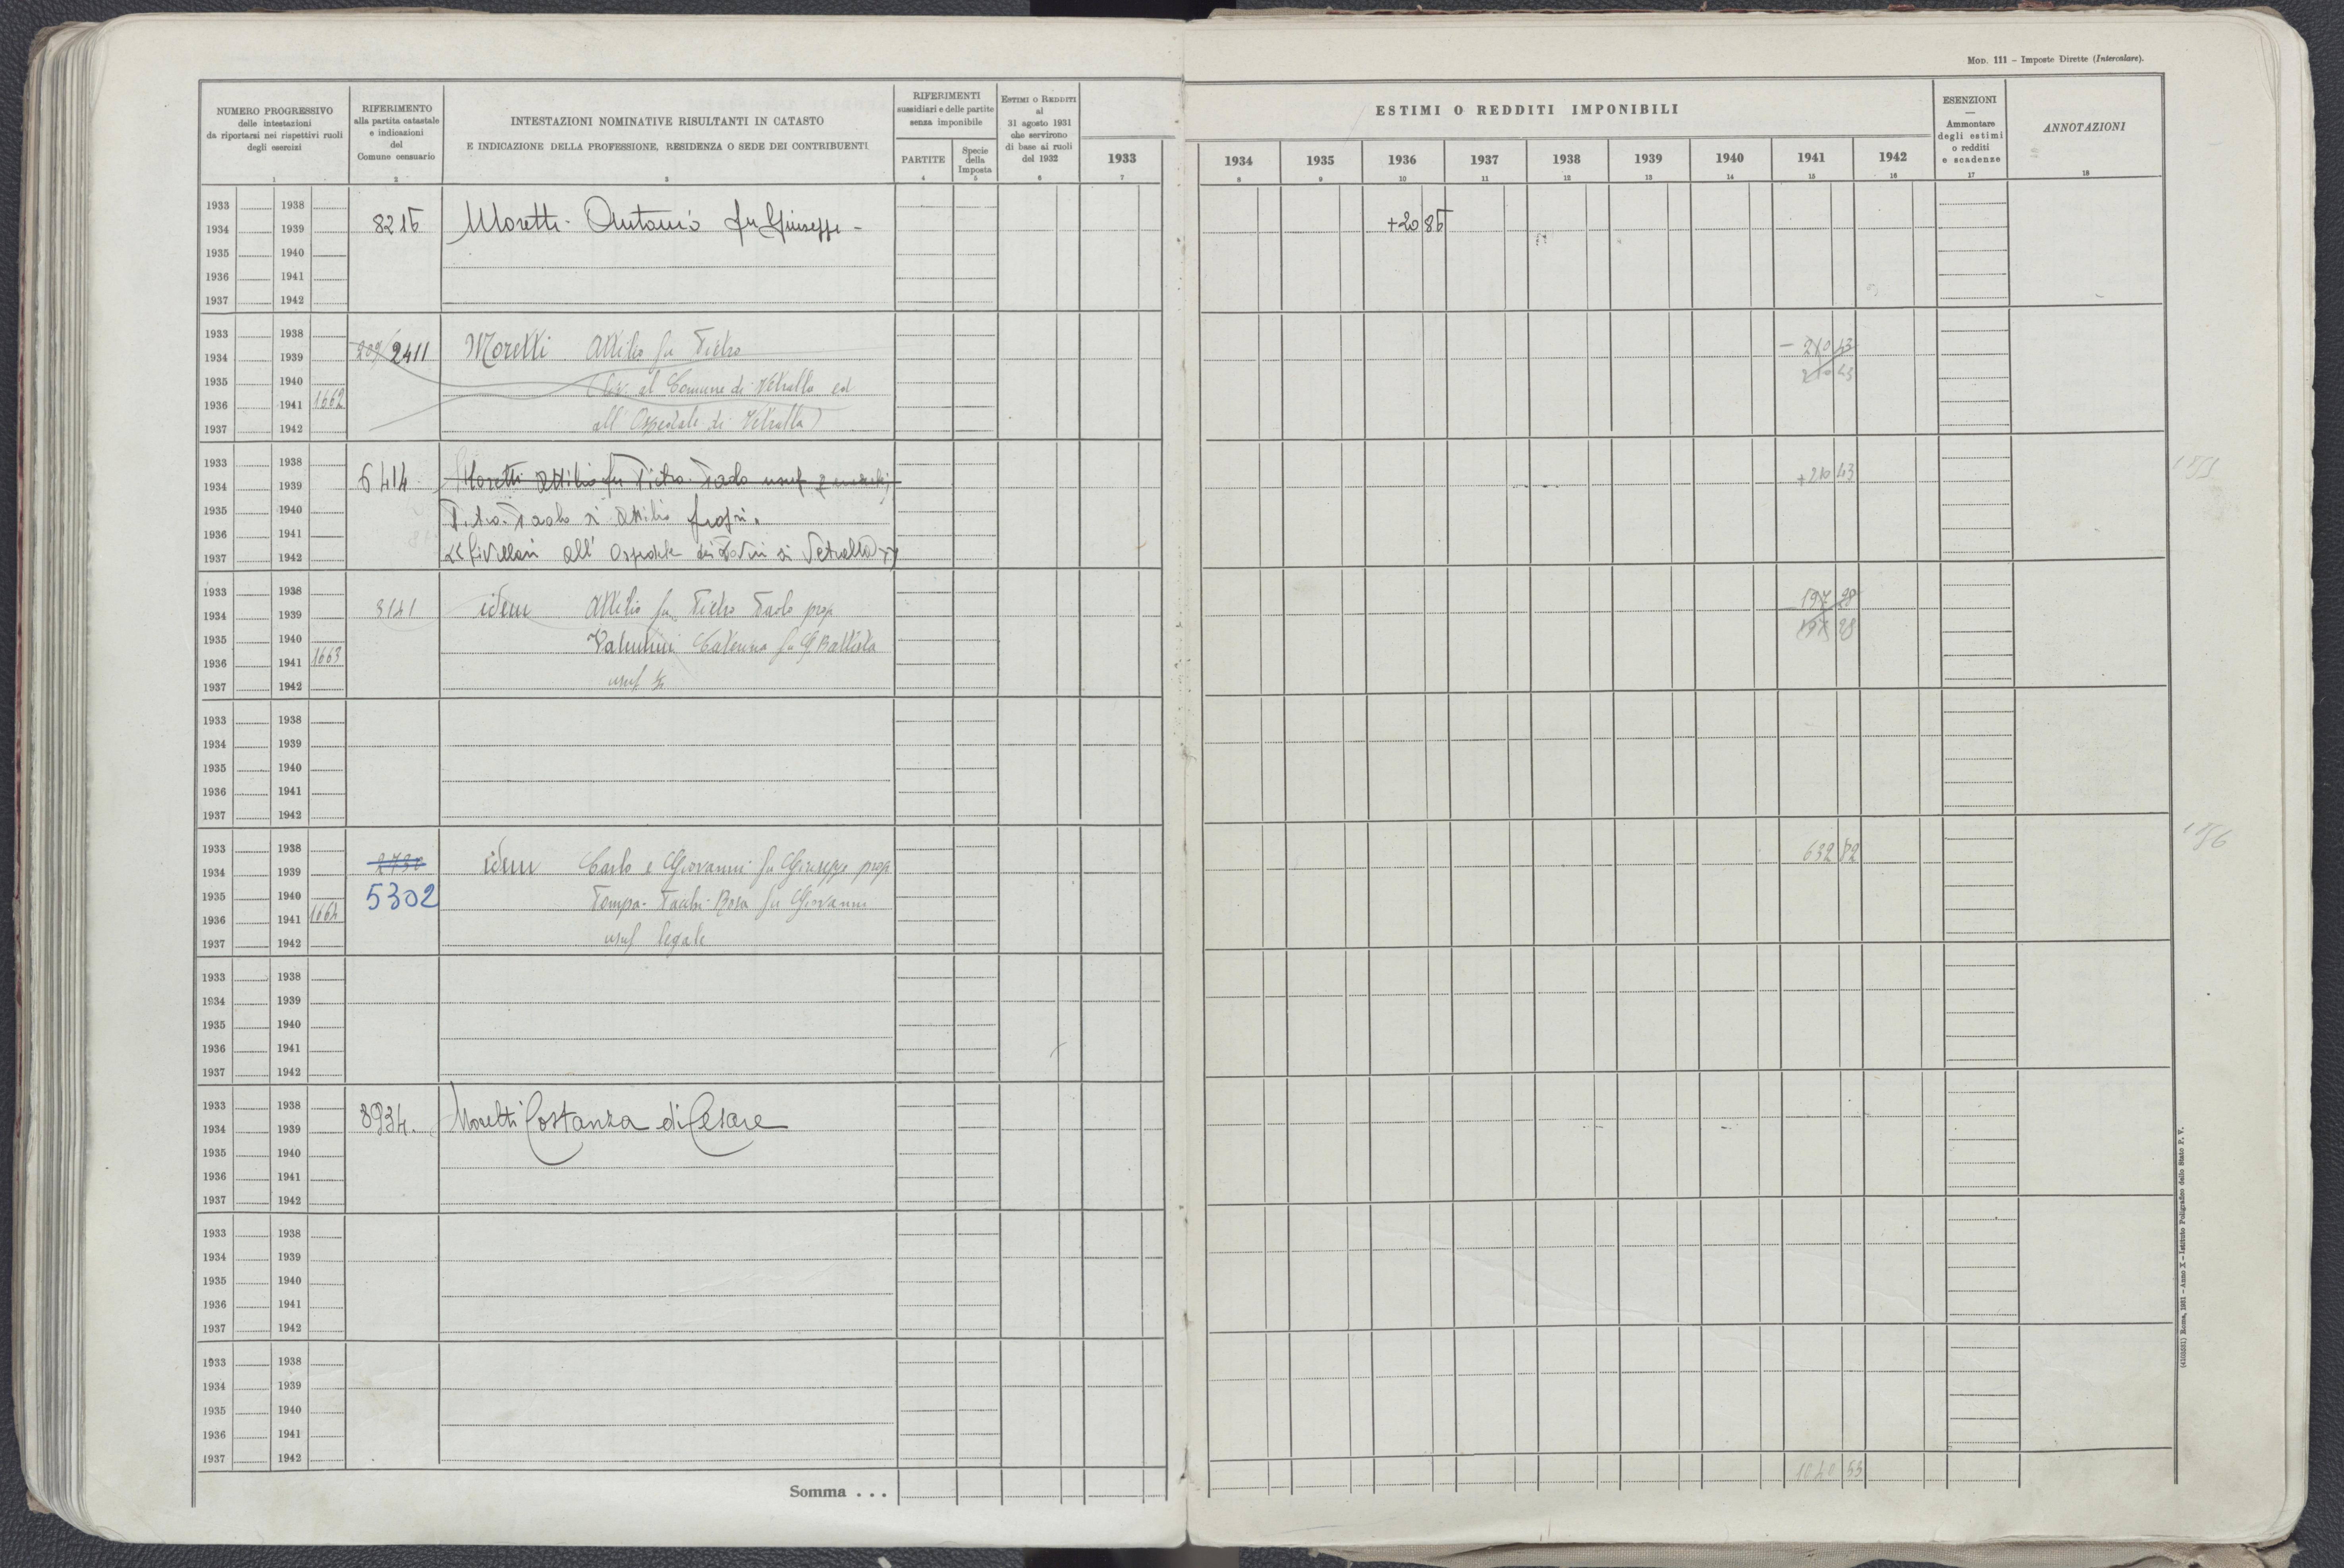 MOD. 111 – Imposte Dirette (Intercalare).
NUMERO PROGRESSIVO
delle intestazioni
da riportarsi nei rispettivi ruoli
degli esercizi
1
RIFERIMENTO
alla partita catastale
e indicazioni
del
Comune censuario
2
INTESTAZIONI NOMINATIVE RISULTANTI IN CATASTO
E INDICAZIONE DELLA PROFESSIONE, RESIDENZA O SEDE DEI CONTRIBUENTI
3
RIFERIMENTI
sussidiari e delle partite
senza imponibile
PARTITE
4
Specie
della
Imposta
5
ESTIMI O REDDITI
al
31 agosto 1931
che servirono
di base ai ruoli
del 1932
6
ESTIMI O REDDITI IMPONIBILI
1933 1934 1935 1936 1937 1938 1939 1940 1941 1942
7 8 9 10 11 12 13 14 15 16
ESENZIONI
—
Ammontare
degli estimi
o redditi
e scadenze
17
ANNOTAZIONI
18
1933 1938
1934 1939 8215 Moretti Antonio fu Giuseppe - +20 85
1935 1940
1936 1941
1937 1942
1933 1938
1934 1939 2411 Moretti Attilio fu Pietro - 210 43
1935 1940 (liv. al Comune di Vetralla ed 210 43
1936 1941 1662
1937 1942 all'Ospedale di Vetralla)
1933 1938
1934 1939 6414 Moretti Attilio fu Pietro Paolo usuf +210 43
1935 1940 Pietro Paolo di Attilio propri.
1936 1941
1937 1942 Livellari all'Ospedale di Vetralla
1933 1938 197 28
1934 1939 3141 idem Attilio fu Pietro Paolo prop 197 28
1935 1940 Valentini Caterina fu G Battista
1936 1941 1663
1937 1942 usuf ½
1933 1938
1934 1939
1935 1940
1936 1941
1937 1942
1933 1938
1934 1939 idem Carlo e Giovanni fu Giuseppe prop 632 82
1935 1940 5302 Pompa Rosa fu Giovanni
1936 1941 1664
1937 1942 usuf legale
1933 1938
1934 1939
1935 1940
1936 1941
1937 1942
1933 1938
1934 1939 8934. Moretti Costanza di Cesare
1935 1940
1936 1941
1937 1942
1933 1938
1934 1939
1935 1940
1936 1941
1937 1942
1933 1938
1934 1939
1935 1940
1936 1941
1937 1942
Somma . . . 1040 53
Roma, 1931 – Anno X – Istituto Poligrafico dello Stato P. V.